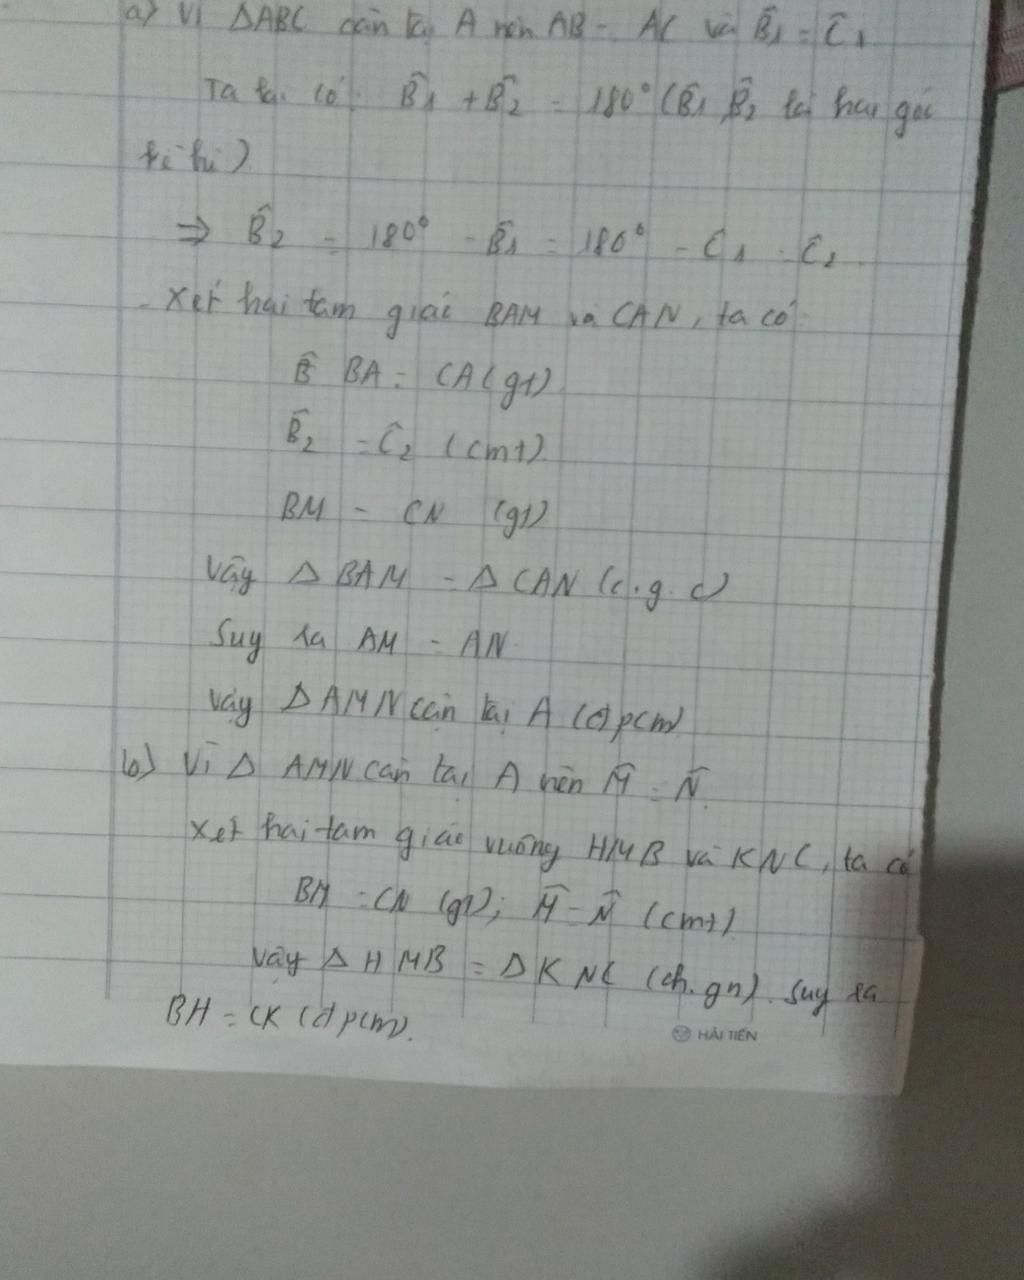 a) Vì ΔABC cân tại A nên AB = AC và B̂1 = Ĉ1
Ta lại có: B̂1 + B̂2 = 180° (B̂1, B̂2 là hai góc
kề bù)
⇒ B̂2 = 180° - B̂1 = 180° - Ĉ1 = Ĉ2.
- Xét hai tam giác BAM và CAN, ta có:
BA = CA (gt)
B̂2 = Ĉ2 (cmt)
BM = CN (gt)
Vậy Δ BAM = Δ CAN (c.g.c)
Suy ra AM = AN.
Vậy Δ AMN cân tại A (đpcm)
b) Vì Δ AMN cân tại A nên M̂ = N̂.
Xét hai tam giác vuông HMB và KNC, ta có
BM = CN (gt); M̂ = N̂ (cmt)
Vậy Δ HMB = Δ KNC (ch.gn). Suy ra
BH = CK (đpcm).
HẢI TIẾN